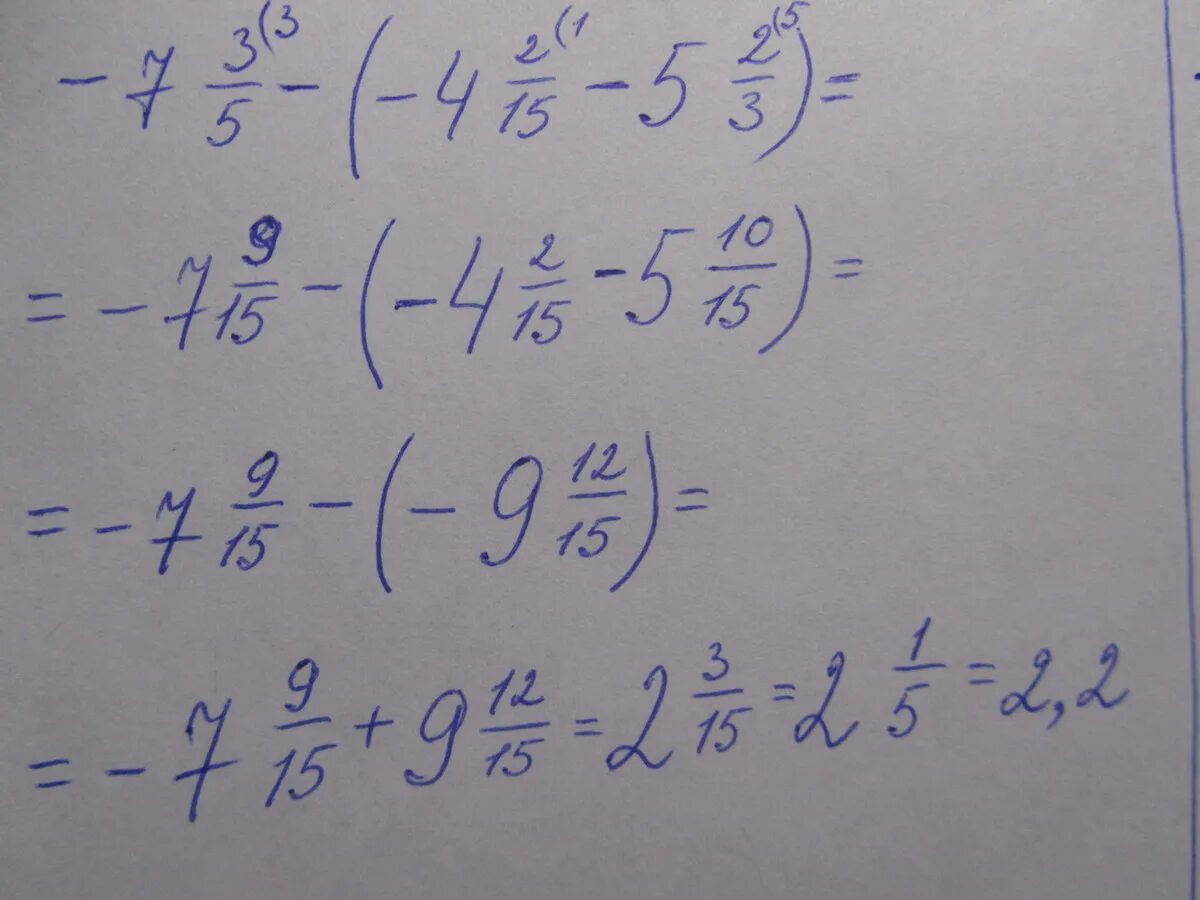 -7 3(3/5 - (-4 2(1/15 - 5 2(5/3) =
= -7 9/15 - (-4 2/15 - 5 10/15) =
= -7 9/15 - (-9 12/15) =
= -7 9/15 + 9 12/15 = 2 3/15 = 2 1/5 = 2,2